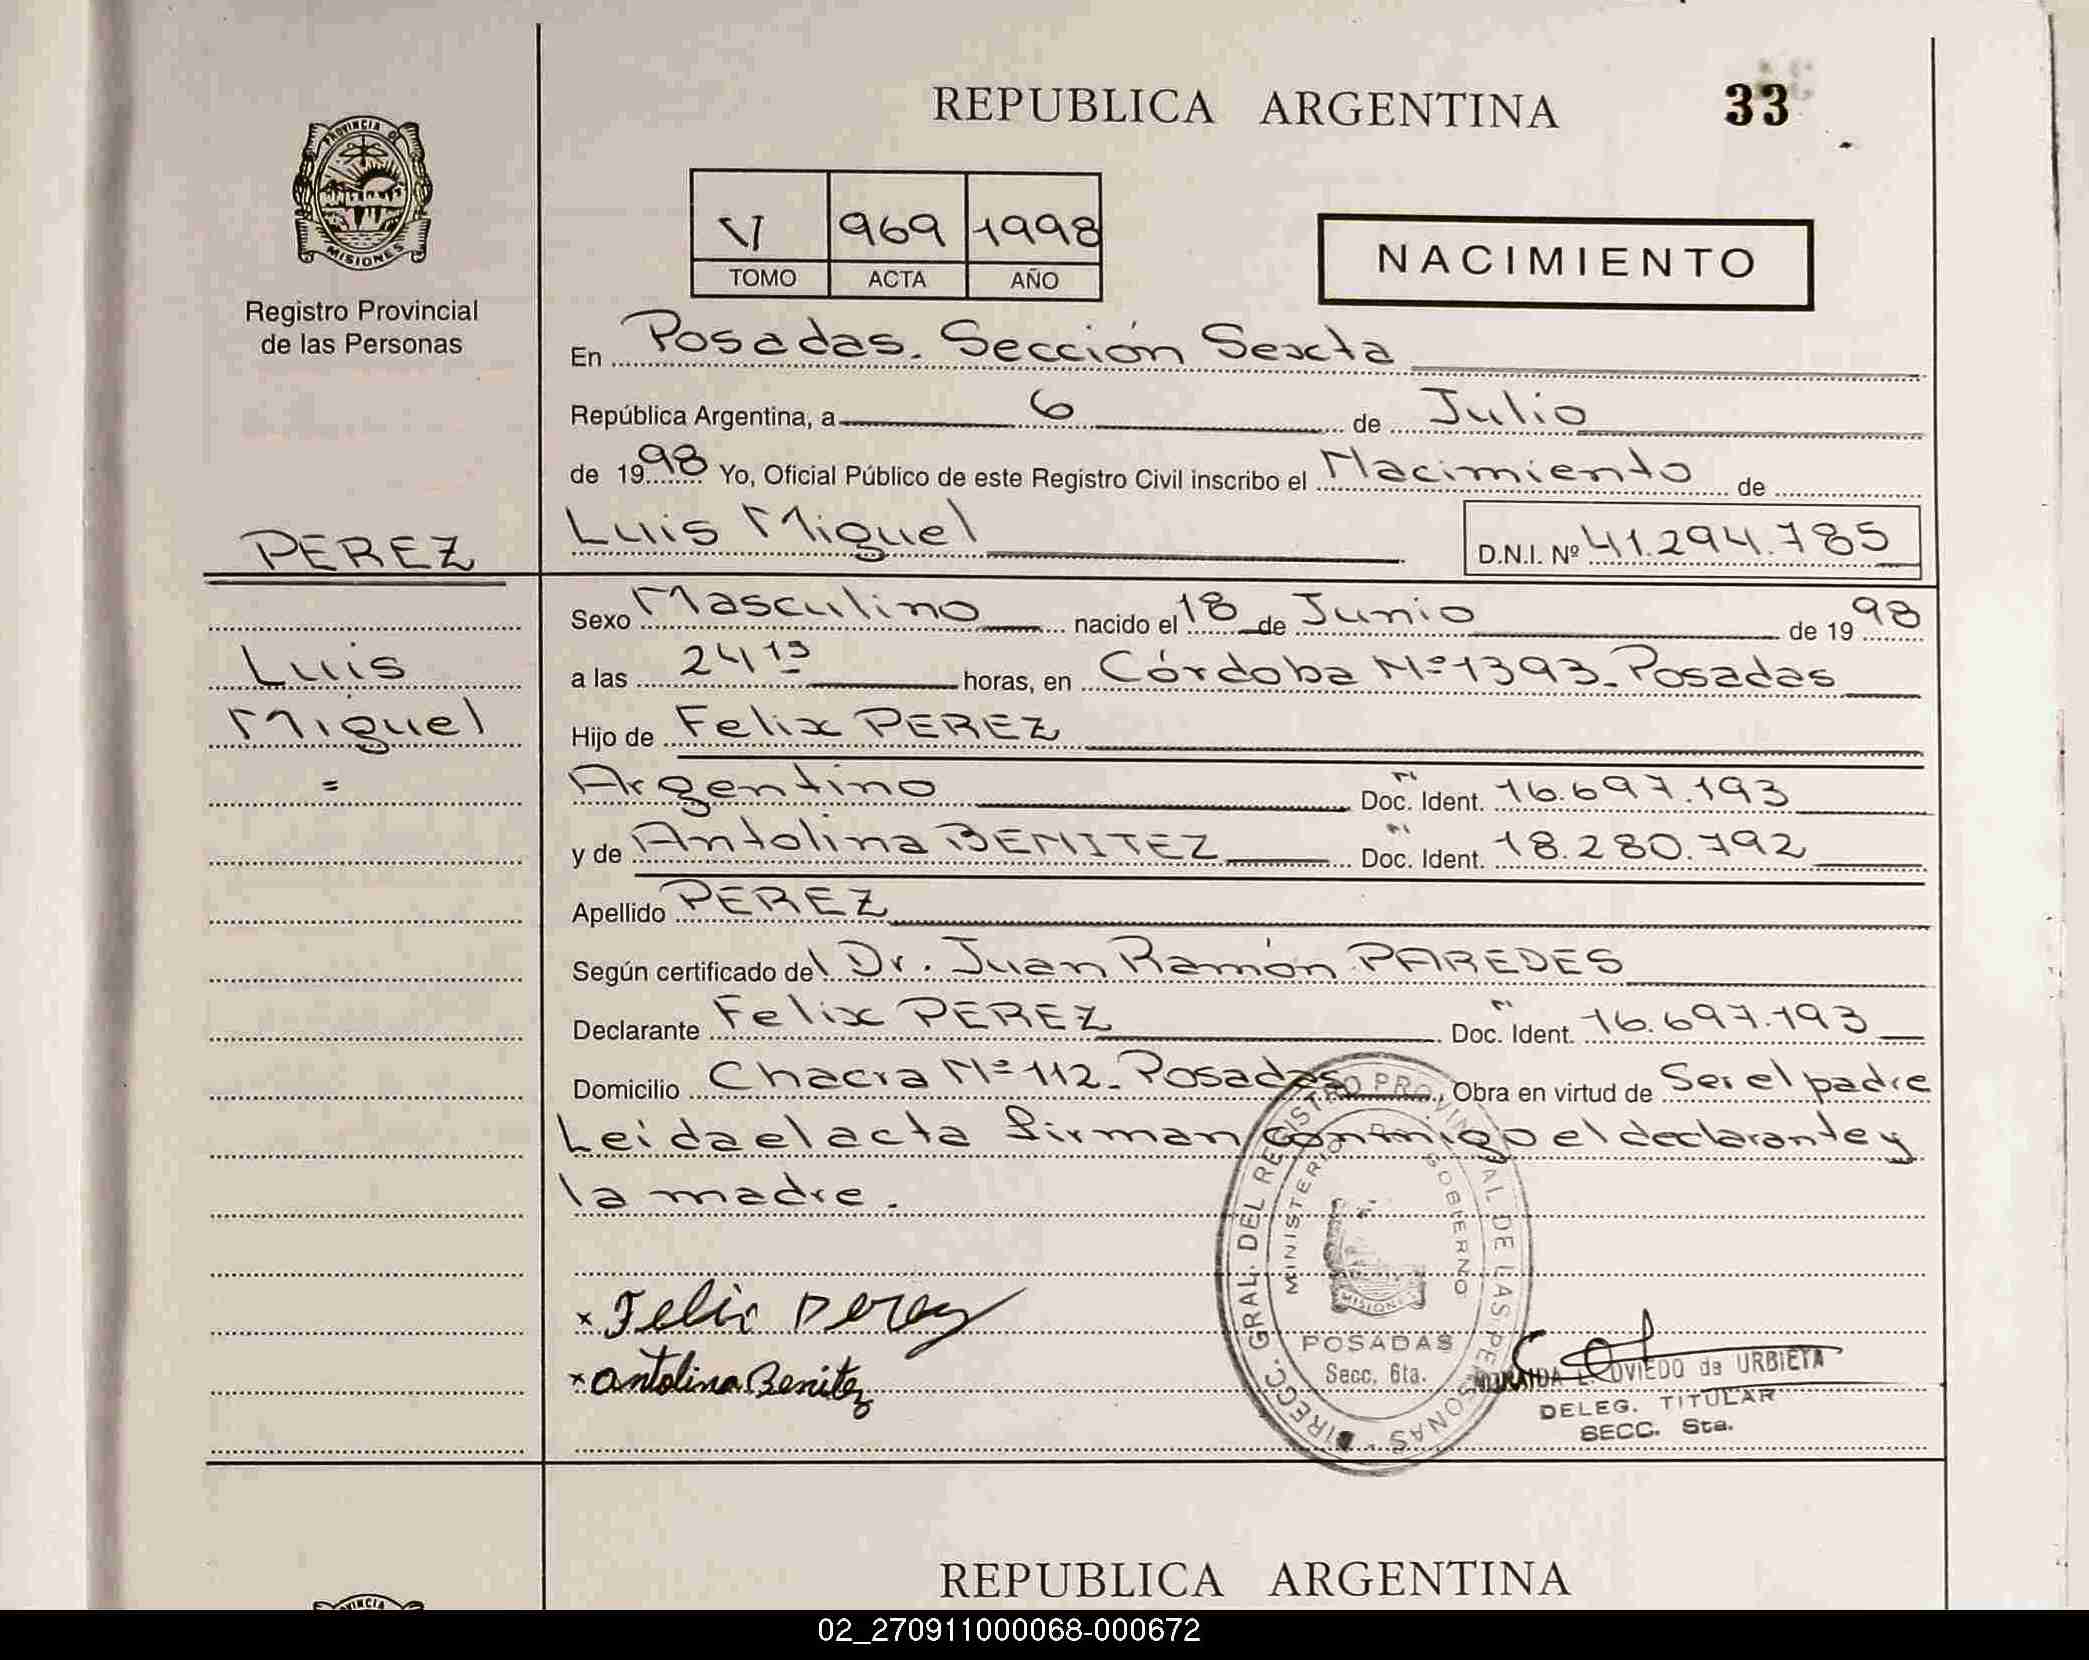 REPUBLICA ARGENTINA
33
PROVINCIA DE
MISIONES
Registro Provincial
de las Personas
V 969 1998
TOMO ACTA AÑO
NACIMIENTO
En Posadas. Sección Sexta
República Argentina, a 6 de Julio
de 1998 Yo, Oficial Público de este Registro Civil inscribo el Nacimiento de
PEREZ
Luis Miguel D.N.I. Nº 41.294.785
Sexo Masculino nacido el 18 de Junio de 1998
Luis
a las 24 15 horas, en Córdoba Nº 1393_Posadas
Miguel
Hijo de Felix PEREZ
=
Argentino Doc. Ident. 16.697.193
y de Antolina BENITEZ Doc. Ident. 18.280.792
Apellido PEREZ
Según certificado del Dr. Juan Ramón PAREDES
Declarante Felix PEREZ Doc. Ident. 16.697.193
Domicilio Chacra Nº 112_Posadas, Obra en virtud de Ser el padre
Leída el acta firman conmigo el declarante y
la madre.
x Felix Perez
x Antolina Benitez
DIRECC. GRAL. DEL REGISTRO PROVINCIAL DE LAS PERSONAS
MINISTERIO GOBIERNO
MISIONES
POSADAS
Secc. 6ta.
OVIEDO de URBIETA
DELEG. TITULAR
SECC. 6ta.
REPUBLICA ARGENTINA
02_270911000068-000672